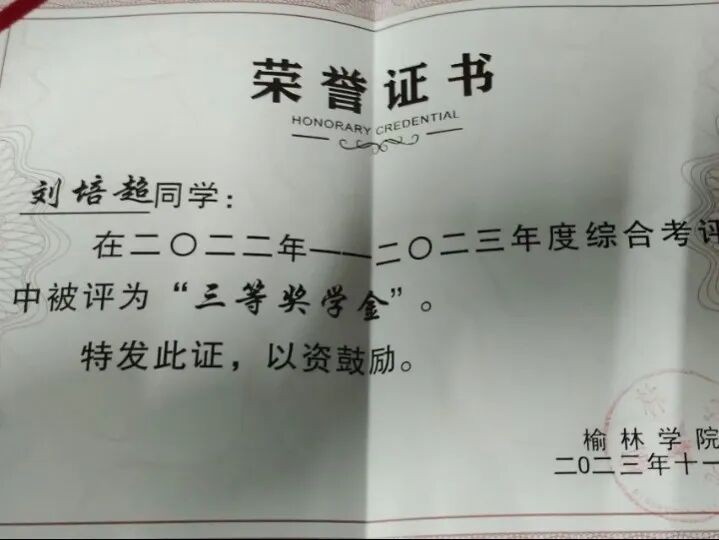 荣誉证书
HONORARY CREDENTIAL
刘培超同学：
在二〇二二年——二〇二三年度综合考评
中被评为“三等奖学金”。
特发此证，以资鼓励。
榆林学院
二〇二三年十一